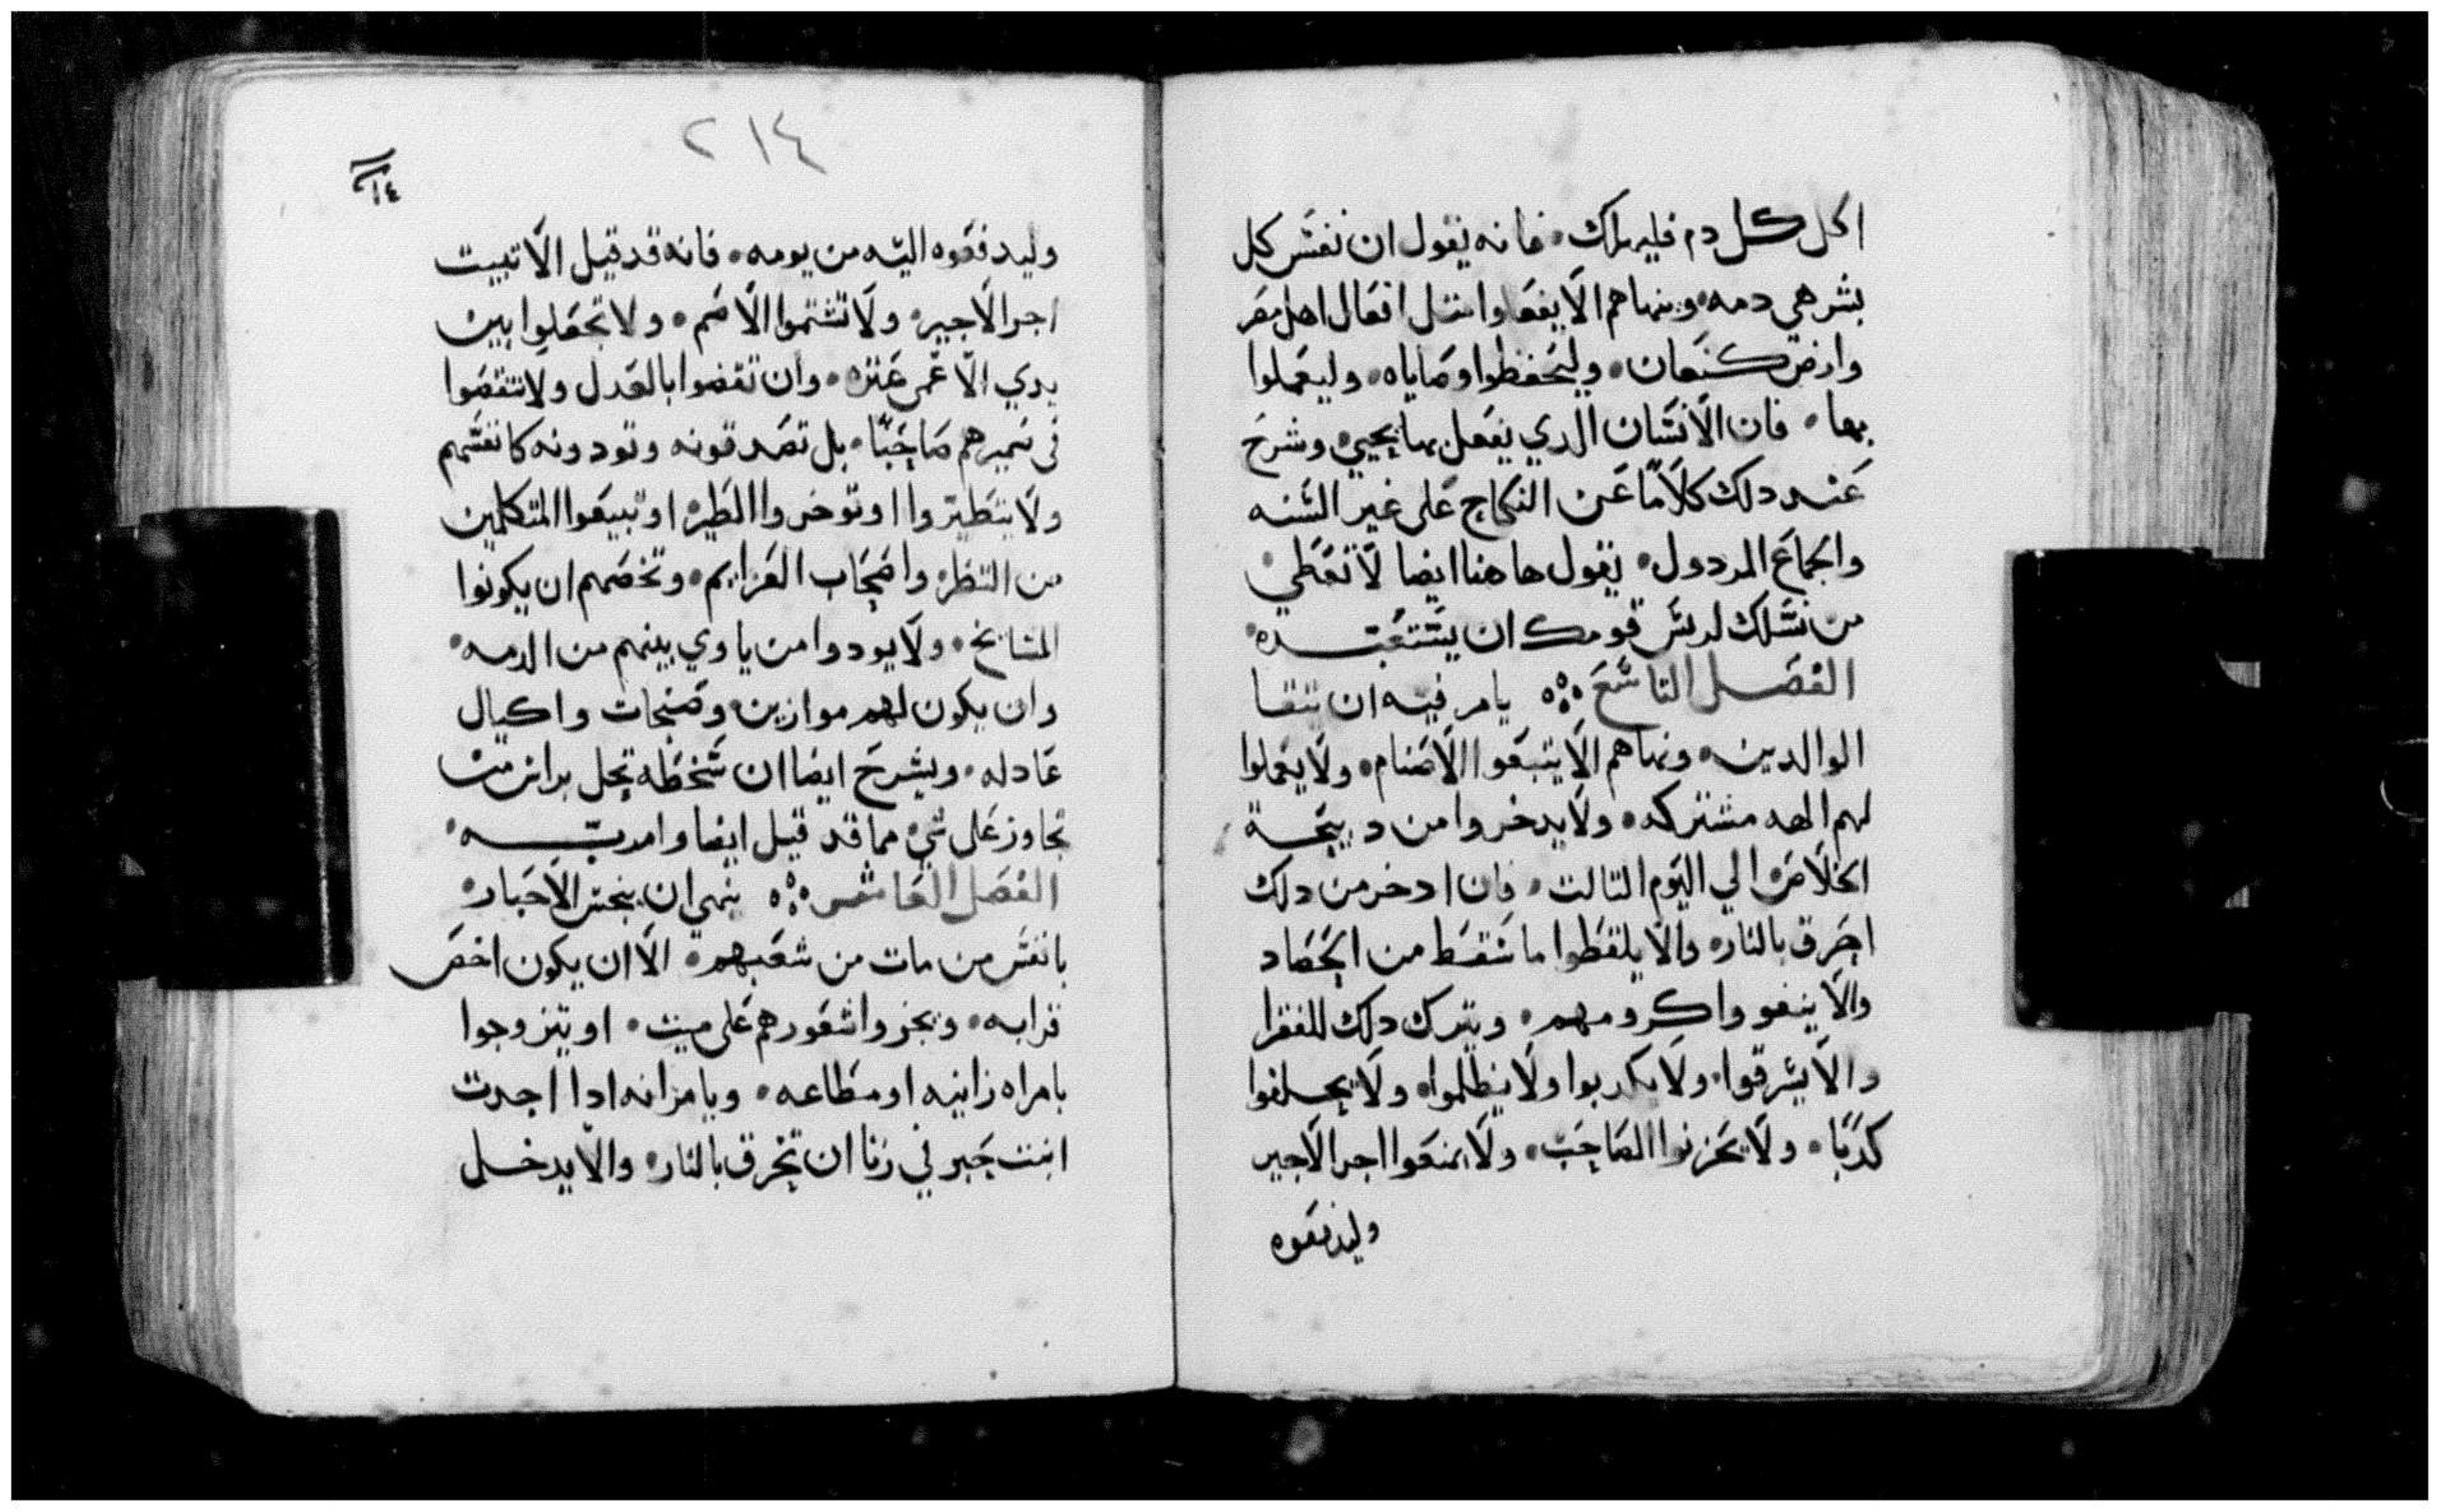 اكل كل دم فليهلك۰ فانه يقول ان نفس كل
بشر هي دمه۰ وينهاهم الا يفعلوا مثل افعال اهل مصر
وارض كنعان۰ وليحفظوا وصاياه۰ وليعملوا
بها۰ فان الانسان الدي يفعل بها يحيي۰ وشرح
عند دلك كلاما عن النكاح على غير السنه
والجماع المردول۰ يقول هاهنا ايضا لا تعطي
من نسلك لريس قومك ان يستعبده۰
الفصل التاسع ۰ يامر فيه ان تتقا
الوالدين۰ ونهاهم الا يتبعوا الاصنام۰ ولا يعملوا
لهم الهه مشتركه۰ ولا يدخروا من دبيحة
الخلاص الي اليوم التالت۰ فان ادخر من دلك
احرق بالنار۰ والا يلقطوا ما سقط من الحصاد
والا ينقوا كرومهم۰ ويترك دلك للفقرا
والا يسرقوا۰ ولا يكدبوا ولا يظلموا۰ ولا يحلفوا
كدبا۰ ولا يحزنوا الصاحب۰ ولا يمنعوا اجر الاجير
وليدفعوه
٢١٤
وليدفعوه اليه من يومه۰ فانه قد قيل الا تبيت
اجر الاجير۰ ولا تشتموا الاصم۰ ولا تجعلوا بين
يدي الاعمى عتره۰ وان تقضوا بالعدل ولا تنقصوا
في ضميرهم صاحبا۰ بل تصدقونه وتودونه كانفسهم
ولا يتطيروا او توخروا الطيره او تبيعوا المتكلمين
من النظر۰ واصحاب العزايم۰ وتخصهم ان يكونوا
المشايخ۰ ولا يودوا من ياوي بينهم من الدمه۰
وان يكون لهم موازين وصنجات واكيال
عادله۰ ويشرح ايضا ان سخطه تحل براس من
تجاوز على شي مما قد قيل ايضا وامر به۰
الفصل العاشر ۰ ينهي ان ينجس الاحبار۰
بانفس من مات من شعبهم۰ الا ان يكون اخص
قرابه۰ ويجزوا شعورهم على ميت۰ او يتزوجوا
بامراه زانيه او مطاعه۰ ويامر انه ادا اخدت
ابنت حبر في زنا ان تحرق بالنار۰ والا يدخل